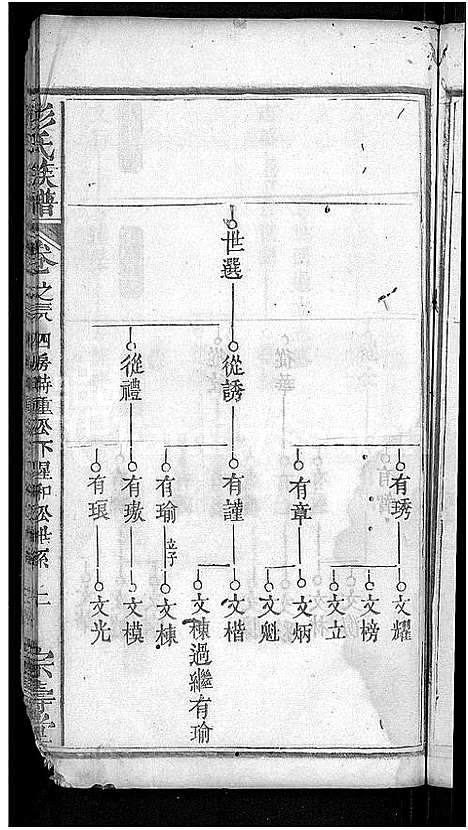 彭氏族譜
卷之
四房時重公下星和公世系
宗壽堂
世選
從誘
從禮
有琇
有章
有謹
有瑜
有璈
有珢
立子
文耀
文榜
文立
文炳
文魁
文楷
文棟過繼有瑜
文棟
文模
文光